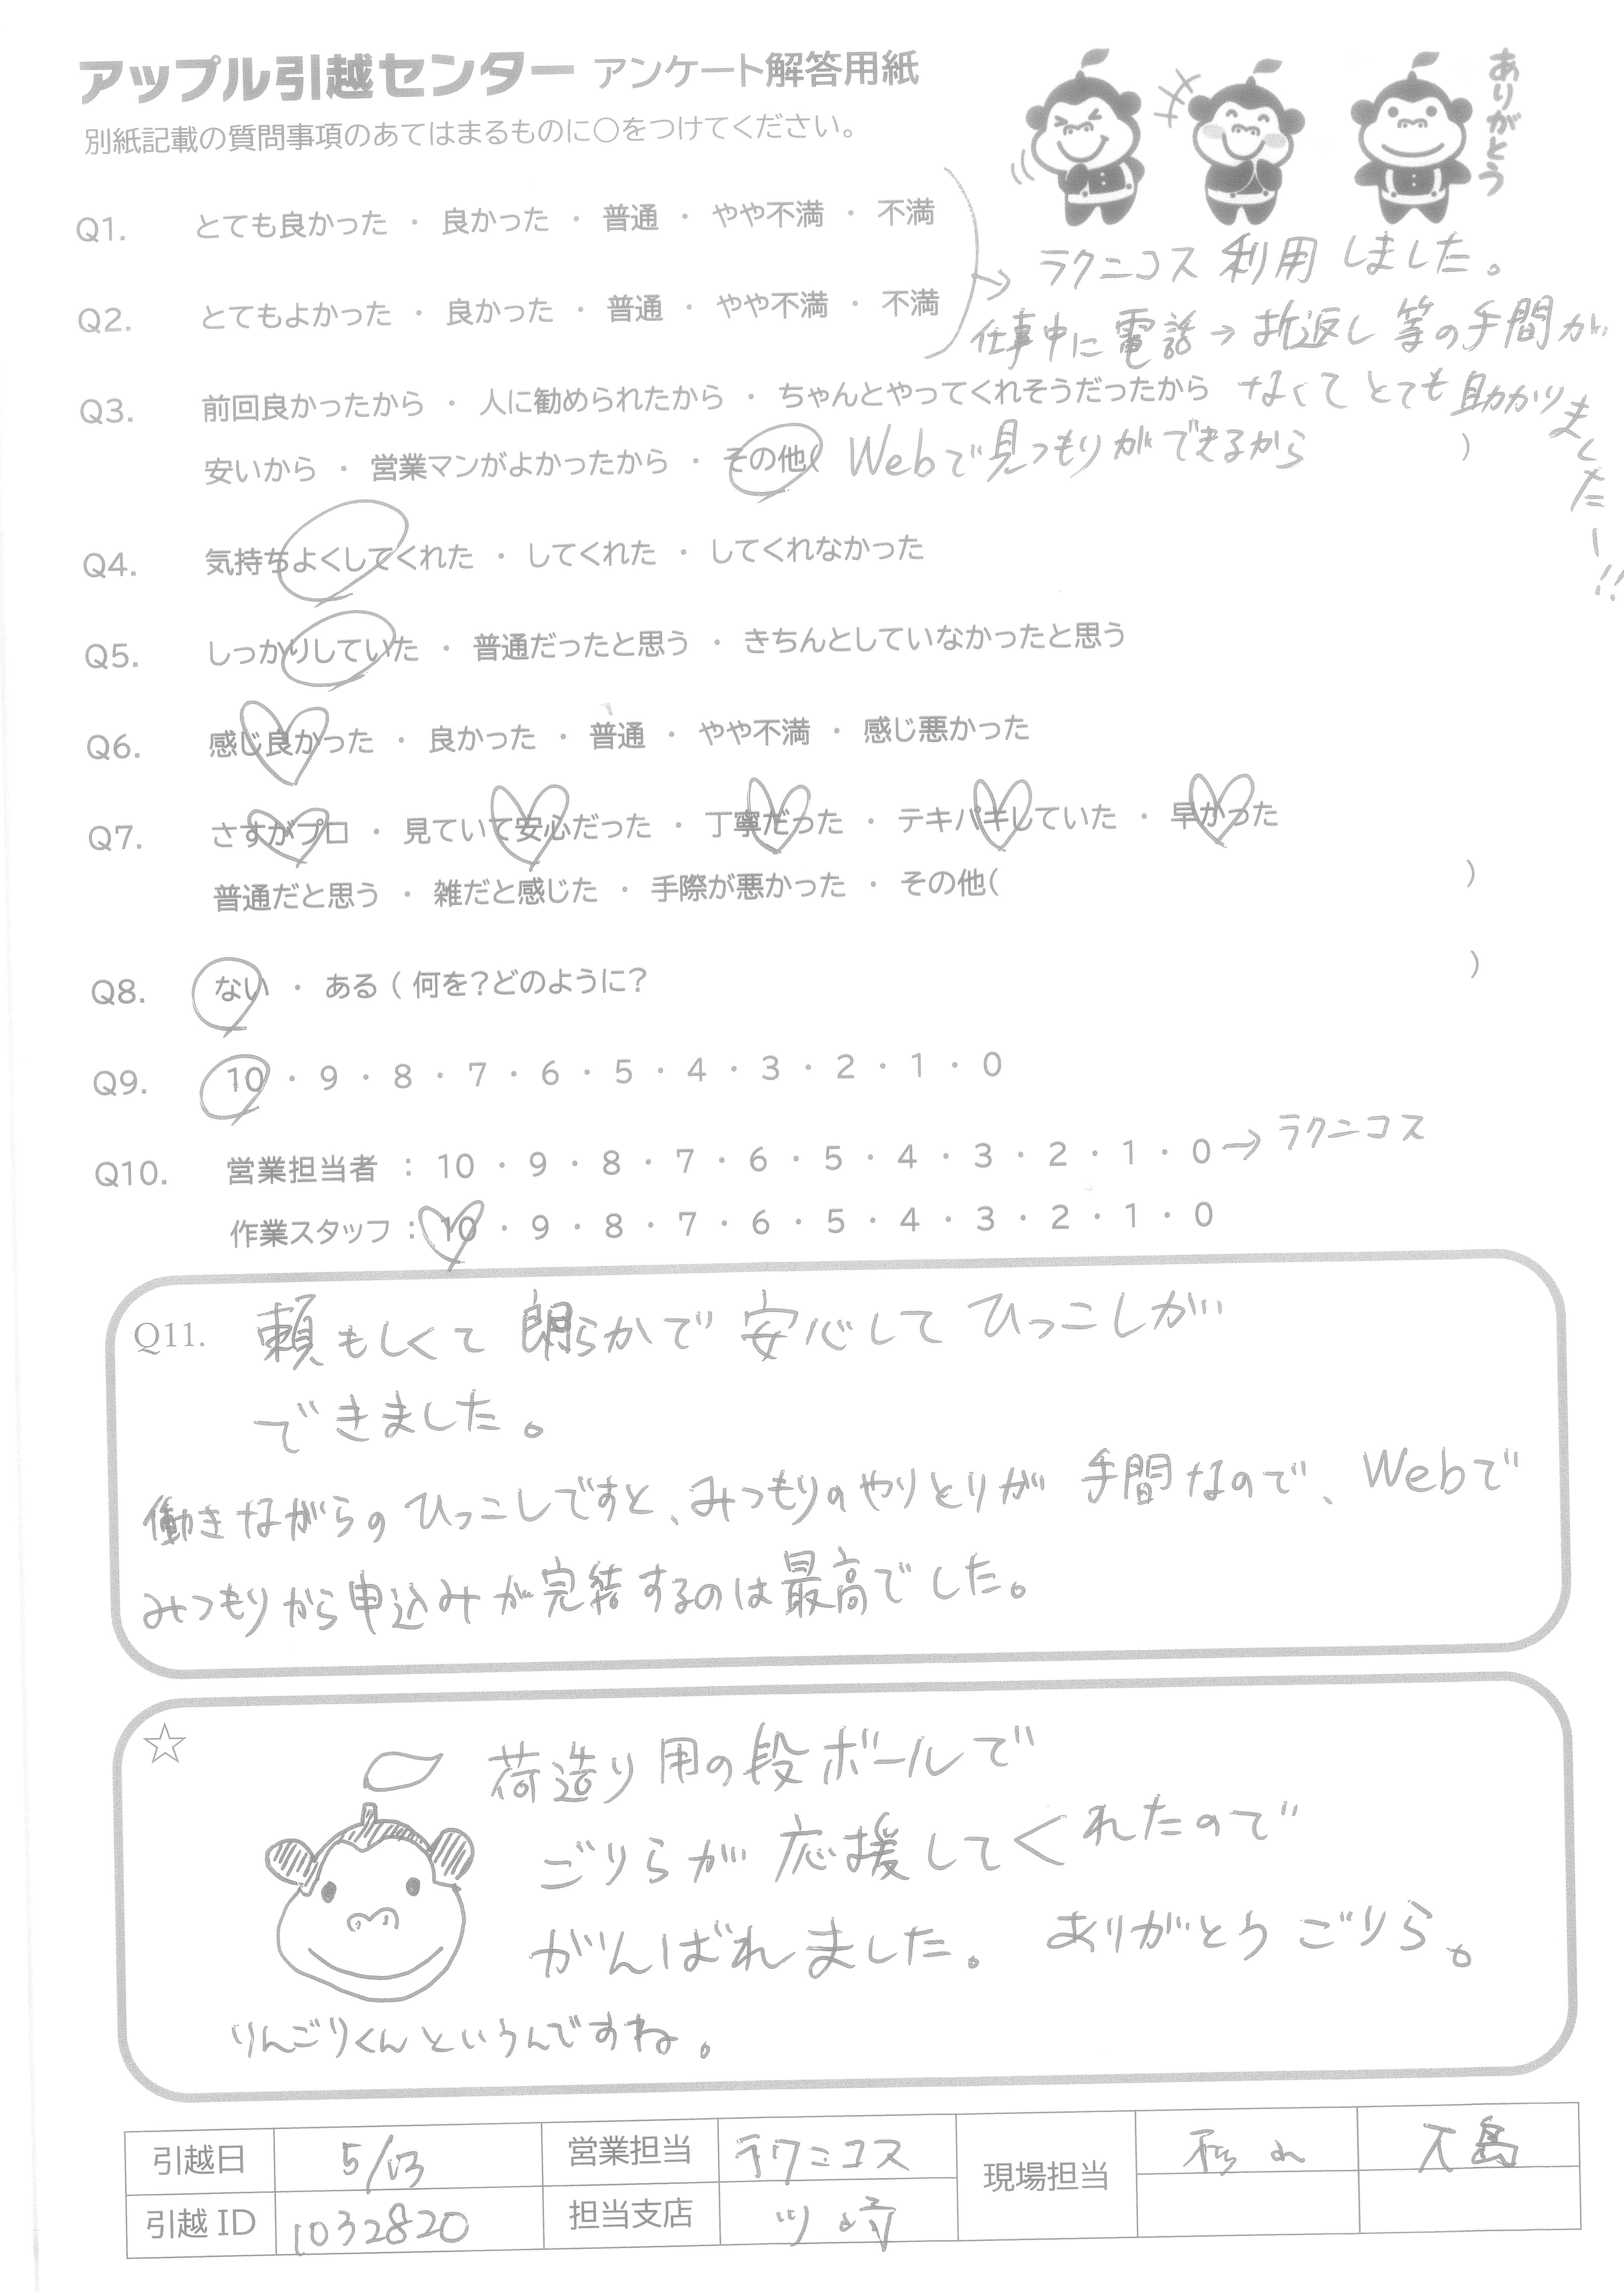 アップル引越センター アンケート解答用紙
ありがとう
別紙記載の質問事項のあてはまるものに○をつけてください。
Q1. とても良かった ・ 良かった ・ 普通 ・ やや不満 ・ 不満
→ ラクニコス 利用 しました。
Q2. とてもよかった ・ 良かった ・ 普通 ・ やや不満 ・ 不満
仕事中に 電話→折返し 等の手間が
なくて とても 助かりましたー!!
Q3. 前回良かったから ・ 人に勧められたから ・ ちゃんとやってくれそうだったから
安いから ・ 営業マンがよかったから ・ その他( Webで見つもりができるから )
Q4. 気持ちよくしてくれた ・ してくれた ・ してくれなかった
Q5. しっかりしていた ・ 普通だったと思う ・ きちんとしていなかったと思う
Q6. 感じ良かった ・ 良かった ・ 普通 ・ やや不満 ・ 感じ悪かった
Q7. さすがプロ ・ 見ていて安心だった ・ 丁寧だった ・ テキパキしていた ・ 早かった
普通だと思う ・ 雑だと感じた ・ 手際が悪かった ・ その他( )
Q8. ない ・ ある ( 何を？どのように？ )
Q9. 10 ・ 9 ・ 8 ・ 7 ・ 6 ・ 5 ・ 4 ・ 3 ・ 2 ・ 1 ・ 0
Q10. 営業担当者 : 10 ・ 9 ・ 8 ・ 7 ・ 6 ・ 5 ・ 4 ・ 3 ・ 2 ・ 1 ・ 0 → ラクニコス
作業スタッフ : 10 ・ 9 ・ 8 ・ 7 ・ 6 ・ 5 ・ 4 ・ 3 ・ 2 ・ 1 ・ 0
Q11. 頼もしくて 朗らかで 安心して ひっこしが
できました。
働きながらの ひっこしですと、みつもりのやりとりが 手間なので、Webで
みつもりから申込みが完結するのは最高でした。
☆ 荷造り用の段ボールで
ごりらが 応援してくれたので
がんばれました。 ありがとう ごりら。
りんごりくんというんですね。
引越日 5/13 営業担当 ラクニコス 現場担当 大島
引越 ID 1032820 担当支店